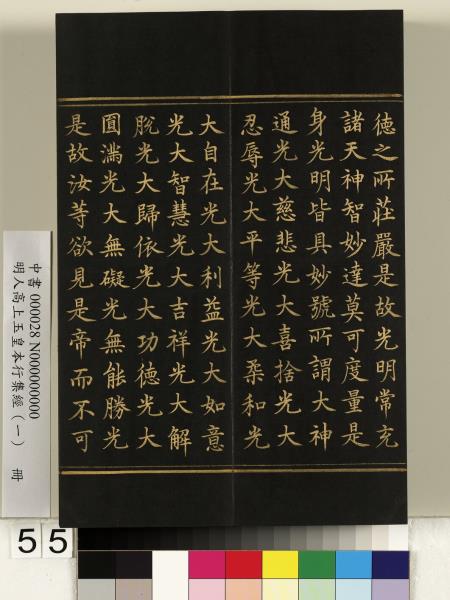 德之所莊嚴是故光明常充
諸天神智妙達莫可度量是
身光明皆具妙號所謂大神
通光大慈悲光大喜捨光大
忍辱光大平等光大柔和光
大自在光大利益光大如意
光大智慧光大吉祥光大解
脫光大歸依光大功德光大
圓滿光大無礙光無能勝光
是故汝等欲見是帝而不可
中書 000028 N000000000
明人高上玉皇本行集經（一） 冊
55